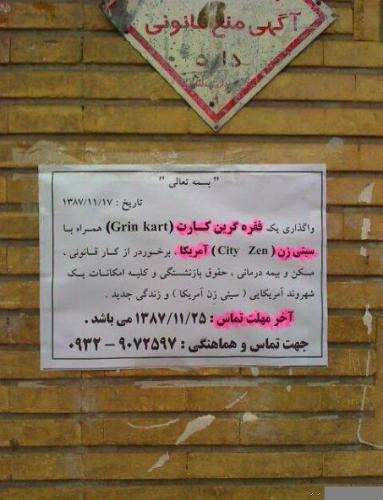 آگهی منع قانونی
دارد
" بسمه تعالی "
تاریخ : ۱۳۸۷/۱۱/۱۷
واگذاری یک فقره گرین کارت (Grin kart) همراه با
سیتی زن (City Zen) آمریکا ، برخوردر از کار قانونی ،
مسکن و بیمه درمانی ، حقوق بازنشتگی و کلیه امکانات یک
شهروند آمریکایی ( سیتی زن آمریکا ) و زندگی جدید .
آخر مهلت تماس : ۱۳۸۷/۱۱/۲۵ می باشد .
جهت تماس و هماهنگی : ۹۰۷۲۵۹۷ - ۰۹۳۲